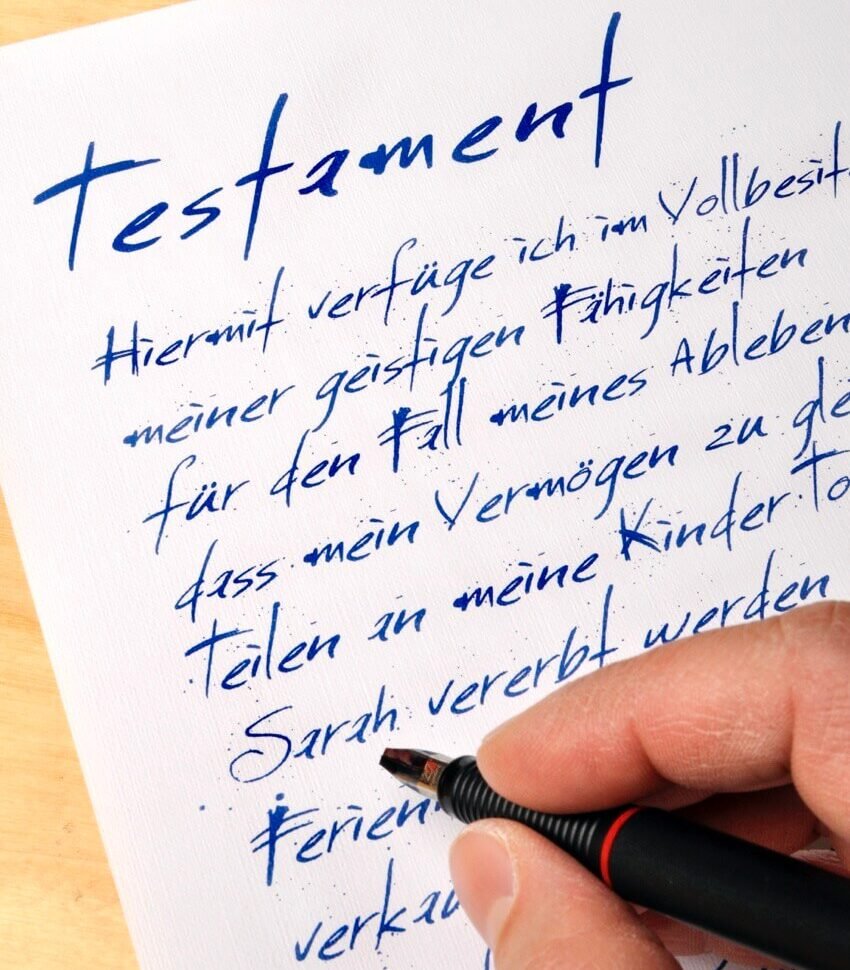 Testament
Hiermit verfüge ich im Vollbesit
meiner geistigen Fähigkeiten
für den Fall meines Ableben
dass mein Vermögen zu gle
Teilen an meine Kinder To
Sarah vererbt werden
Ferien
verkau